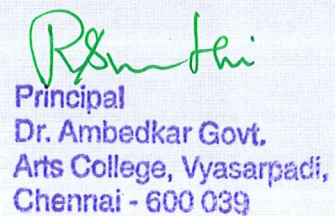 Principal
Dr. Ambedkar Govt.
Arts College, Vyasarpadi,
Chennai - 600 039